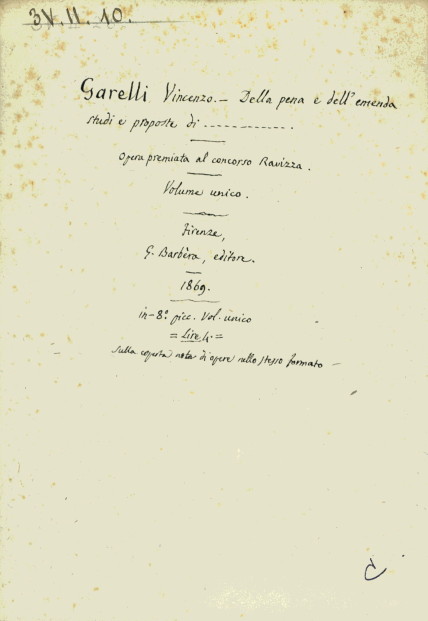 3V.II.10.
Garelli Vincenzo. — Della pena e dell'emenda
studi e proposte di ..............
Opera premiata al concorso Ravizza.
Volume unico.
Firenze,
G. Barbèra, editore.
1869.
in-8.° picc. Vol. unico
= Lire 4. =
Sulla coperta nota di opere nello stesso formato —